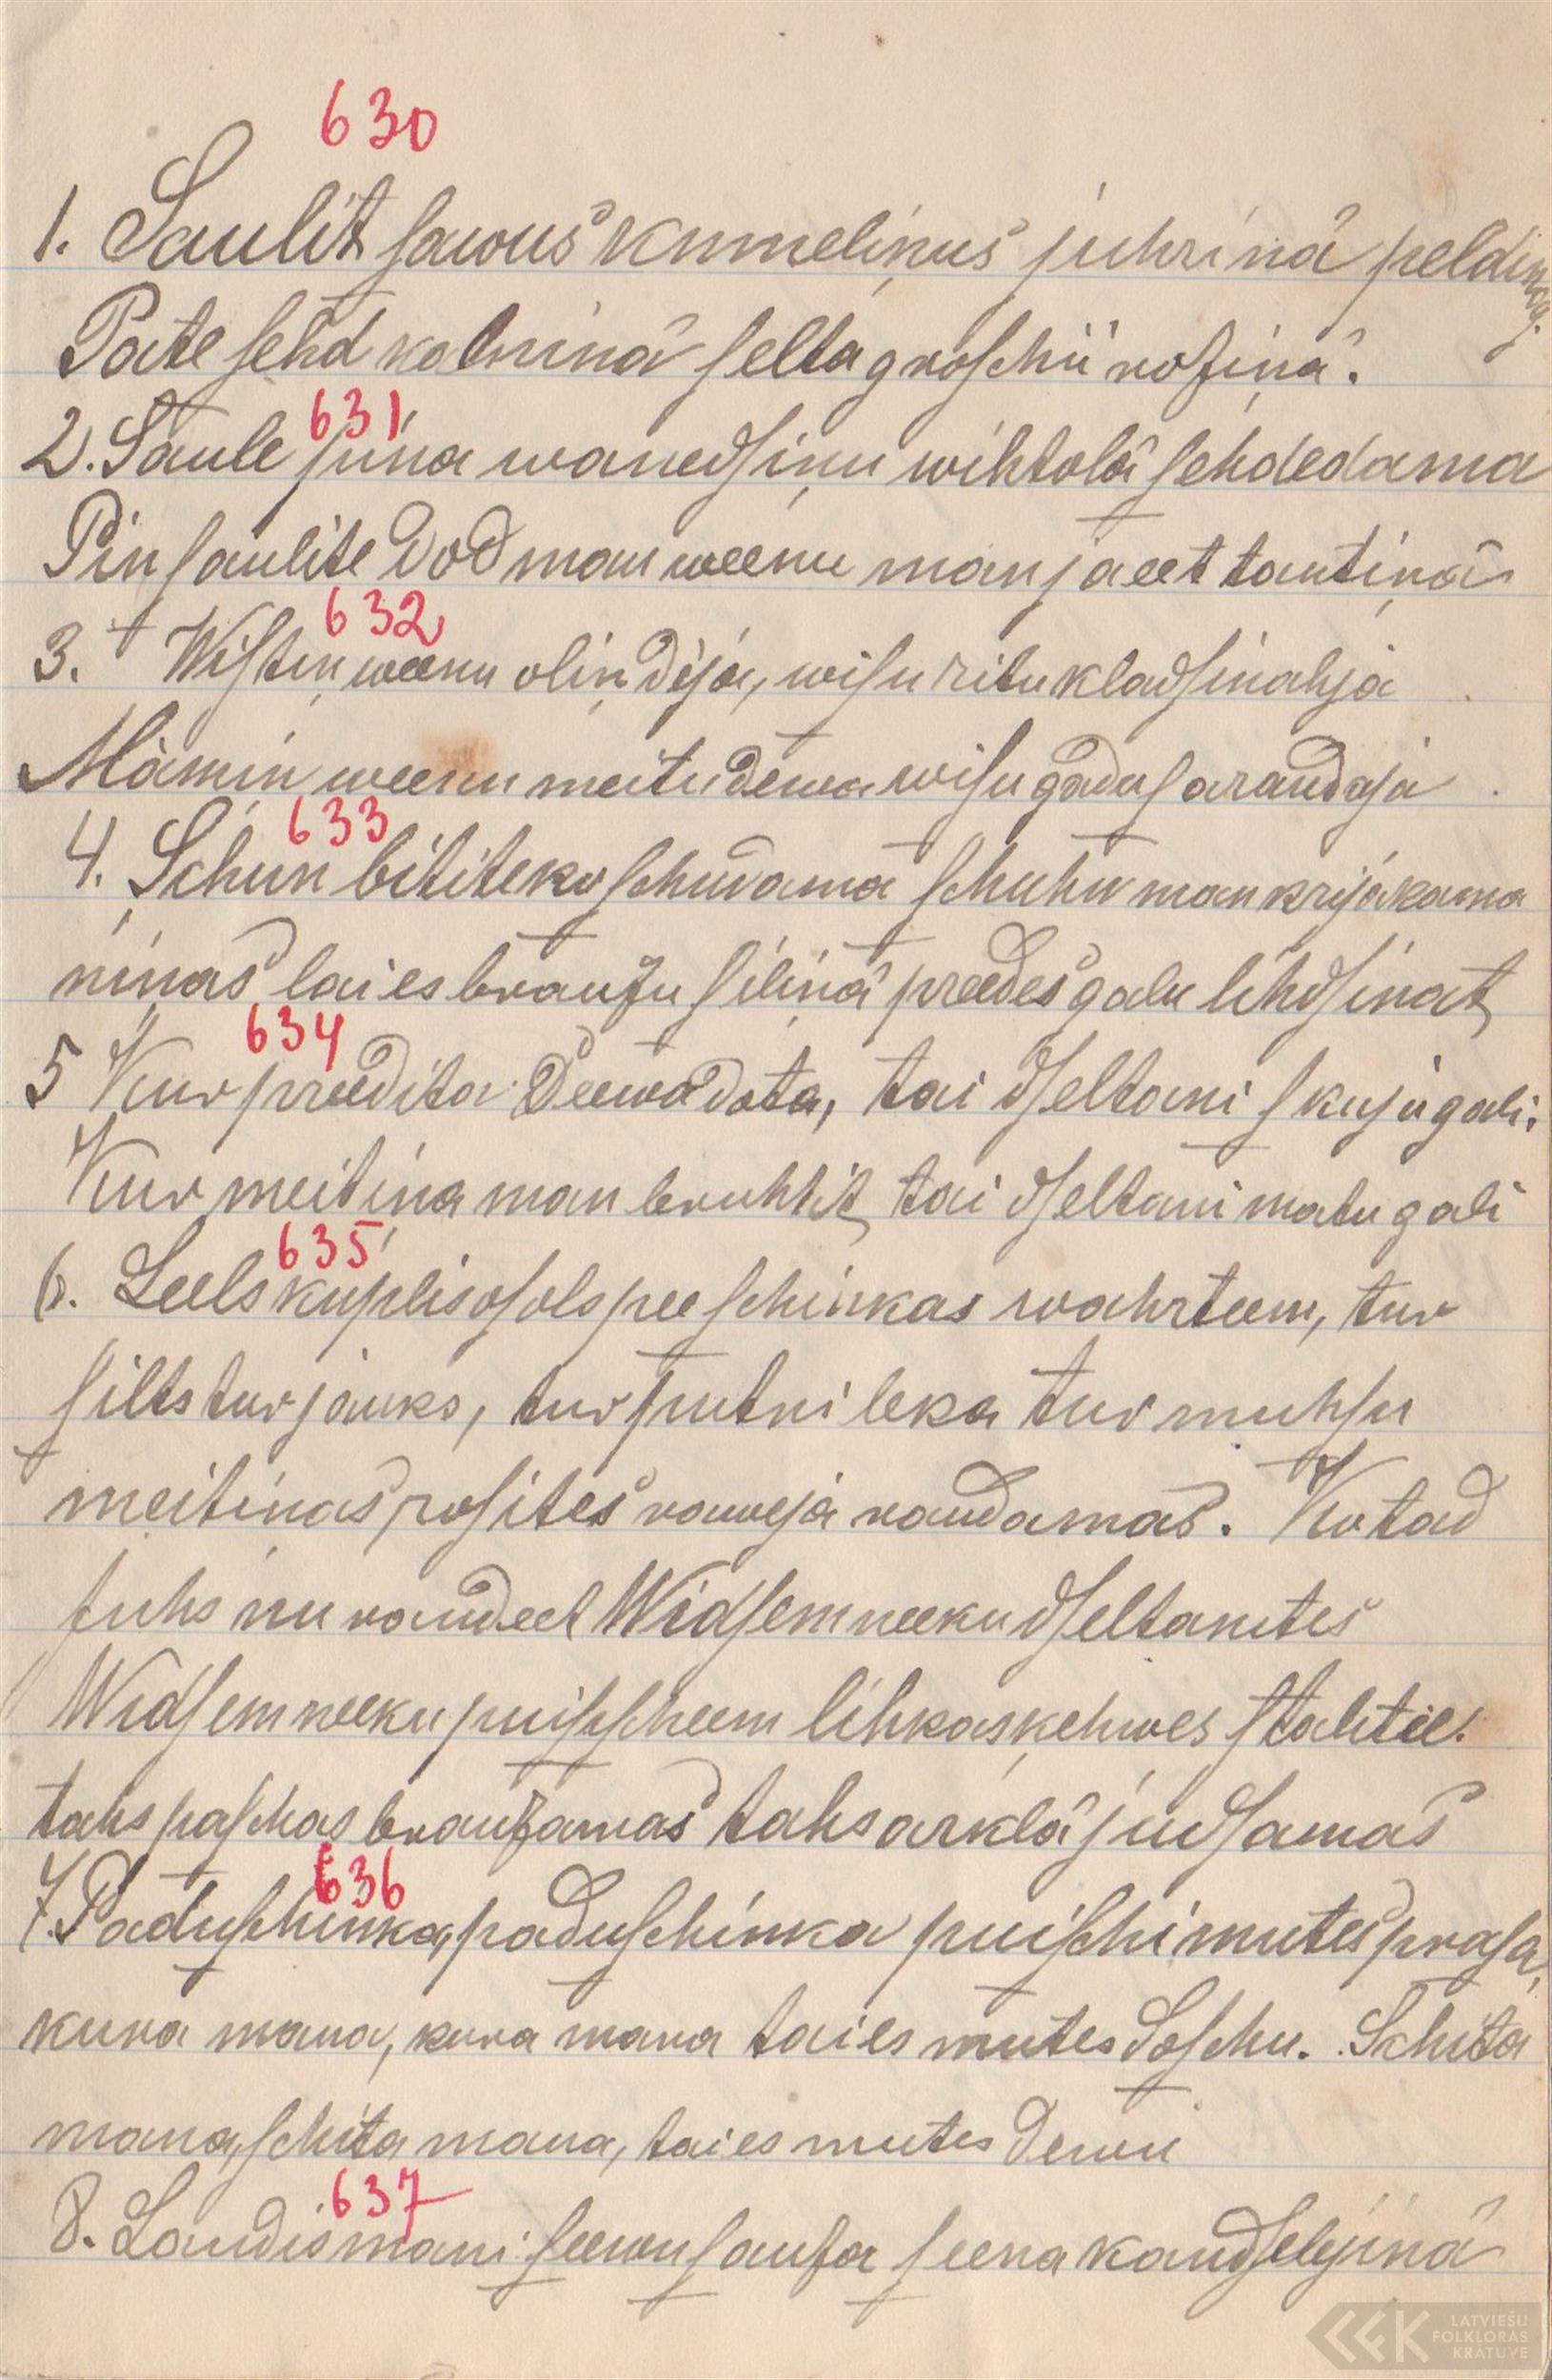 630
1. Saulit ſawus kumeliņus juhriņâ peldinaj.
Pate ſehd kalniņâ ſelta groſchii rokiņâ.
631
2. Saule pina wanedſiņu wihtolâ ſehdedama
Pin ſaulite dod man weenu man ja eet tautiņâs
632
3. Wiſtiņ weenu oliņ dija, wiſu ritu kladſinahja
Mâmiņ weenu meitu dewa wiſu gadu ſaraudaja
633
4. Schun bitite ko ſchudama ſchuhn man krija kama
niņas lai es braukzu ſiliņâ preedes galu lihdſinat
634
5 Kur preedita Deewa dota, tai dſeltani ſkuju gali.
Kur meitiņa man bruhtit, tai dſeltani matu gali
635
6. Leels kuplis oſols pee ſchinkas wahrteem, tur
ſilts tur jauks, tur putni leka tur muhſu
meitiņas roſites raweja raudamas. Ko tad
juhs nu raudeet Widſemneeku dſeltanites
Widſemneeku puiſcheem lihkas ķehwes ſtalti.
tahs paſchas braukamas tahs arklâ judſamas
636
7. Paduſchinka, paduſchinka puiſchi mutes praſa,
kura mana, kura mana tai es mutes doſchu. Schita
mana, ſchita mana, tai es mutes dewu
637
8. Laudis mani ſeewu ſauka ſeena kaudſeljiņâ
LATVIEŠU
FOLKLORAS
KRĀTUVE